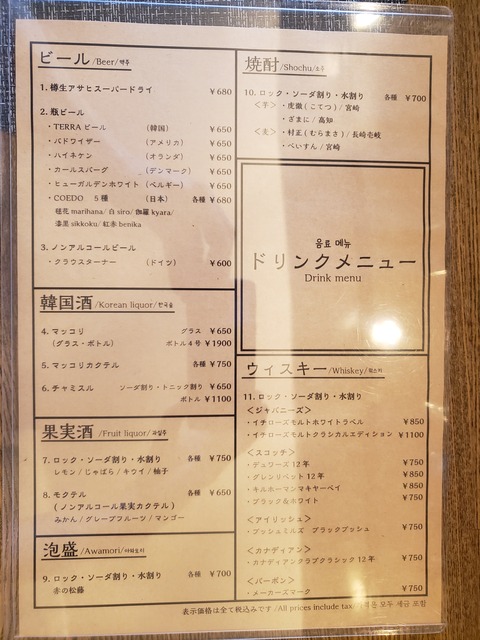 ビール/Beer/맥주
1. 樽生アサヒスーパードライ ￥680
2. 瓶ビール
・TERRA ビール （韓国） ￥650
・バドワイザー （アメリカ） ￥650
・ハイネケン （オランダ） ￥650
・カールスバーグ （デンマーク） ￥650
・ヒューガルデンホワイト（ベルギー） ￥650
・COEDO 5種 （日本） 各種 ￥680
毬花 marihana/ 白 siro/ 伽羅 kyara/
漆黒 sikkoku/ 紅赤 benika
3. ノンアルコールビール
・クラウスターナー （ドイツ） ￥600
韓国酒/Korean liquor/한국술
4. マッコリ グラス ￥650
（グラス・ボトル） ボトル4号 ￥1900
5. マッコリカクテル 各種 ￥750
6. チャミスル ソーダ割り・トニック割り ￥650
ボトル ￥1100
果実酒/Fruit liquor/과실주
7. ロック・ソーダ割り・水割り 各種 ￥750
レモン / じゃばら / キウイ / 柚子
8. モクテル 各種 ￥650
（ノンアルコール果実カクテル）
みかん / グレープフルーツ / マンゴー
泡盛/Awamori/아와모리
9. ロック・ソーダ割り・水割り 各種 ￥700
赤の松藤
焼酎/Shochu/소주
10. ロック・ソーダ割り・水割り 各種 ￥700
＜芋＞・虎徹（こてつ）/ 宮崎
・ざまに / 高知
＜麦＞・村正（むらまさ）/ 長崎壱岐
・べいすん / 宮崎
음료 메뉴
ドリンクメニュー
Drink menu
ウィスキー/Whiskey/위스키
11. ロック・ソーダ割り・水割り
＜ジャパニーズ＞
・イチローズモルトホワイトラベル ￥850
・イチローズモルトクラシカルエディション ￥1100
＜スコッチ＞
・デュワーズ 12 年 ￥750
・グレンリベット 12 年 ￥850
・キルホーマンマキヤーベイ ￥850
・ブラック＆ホワイト ￥750
＜アイリッシュ＞
・ブッシュミルズ ブラックブッシュ ￥750
＜カナディアン＞
・カナディアンクラブクラシック 12 年 ￥750
＜バーボン＞
・メーカーズマーク ￥750
表示価格は全て税込みです / All prices include tax / 가격은 모두 세금 포함